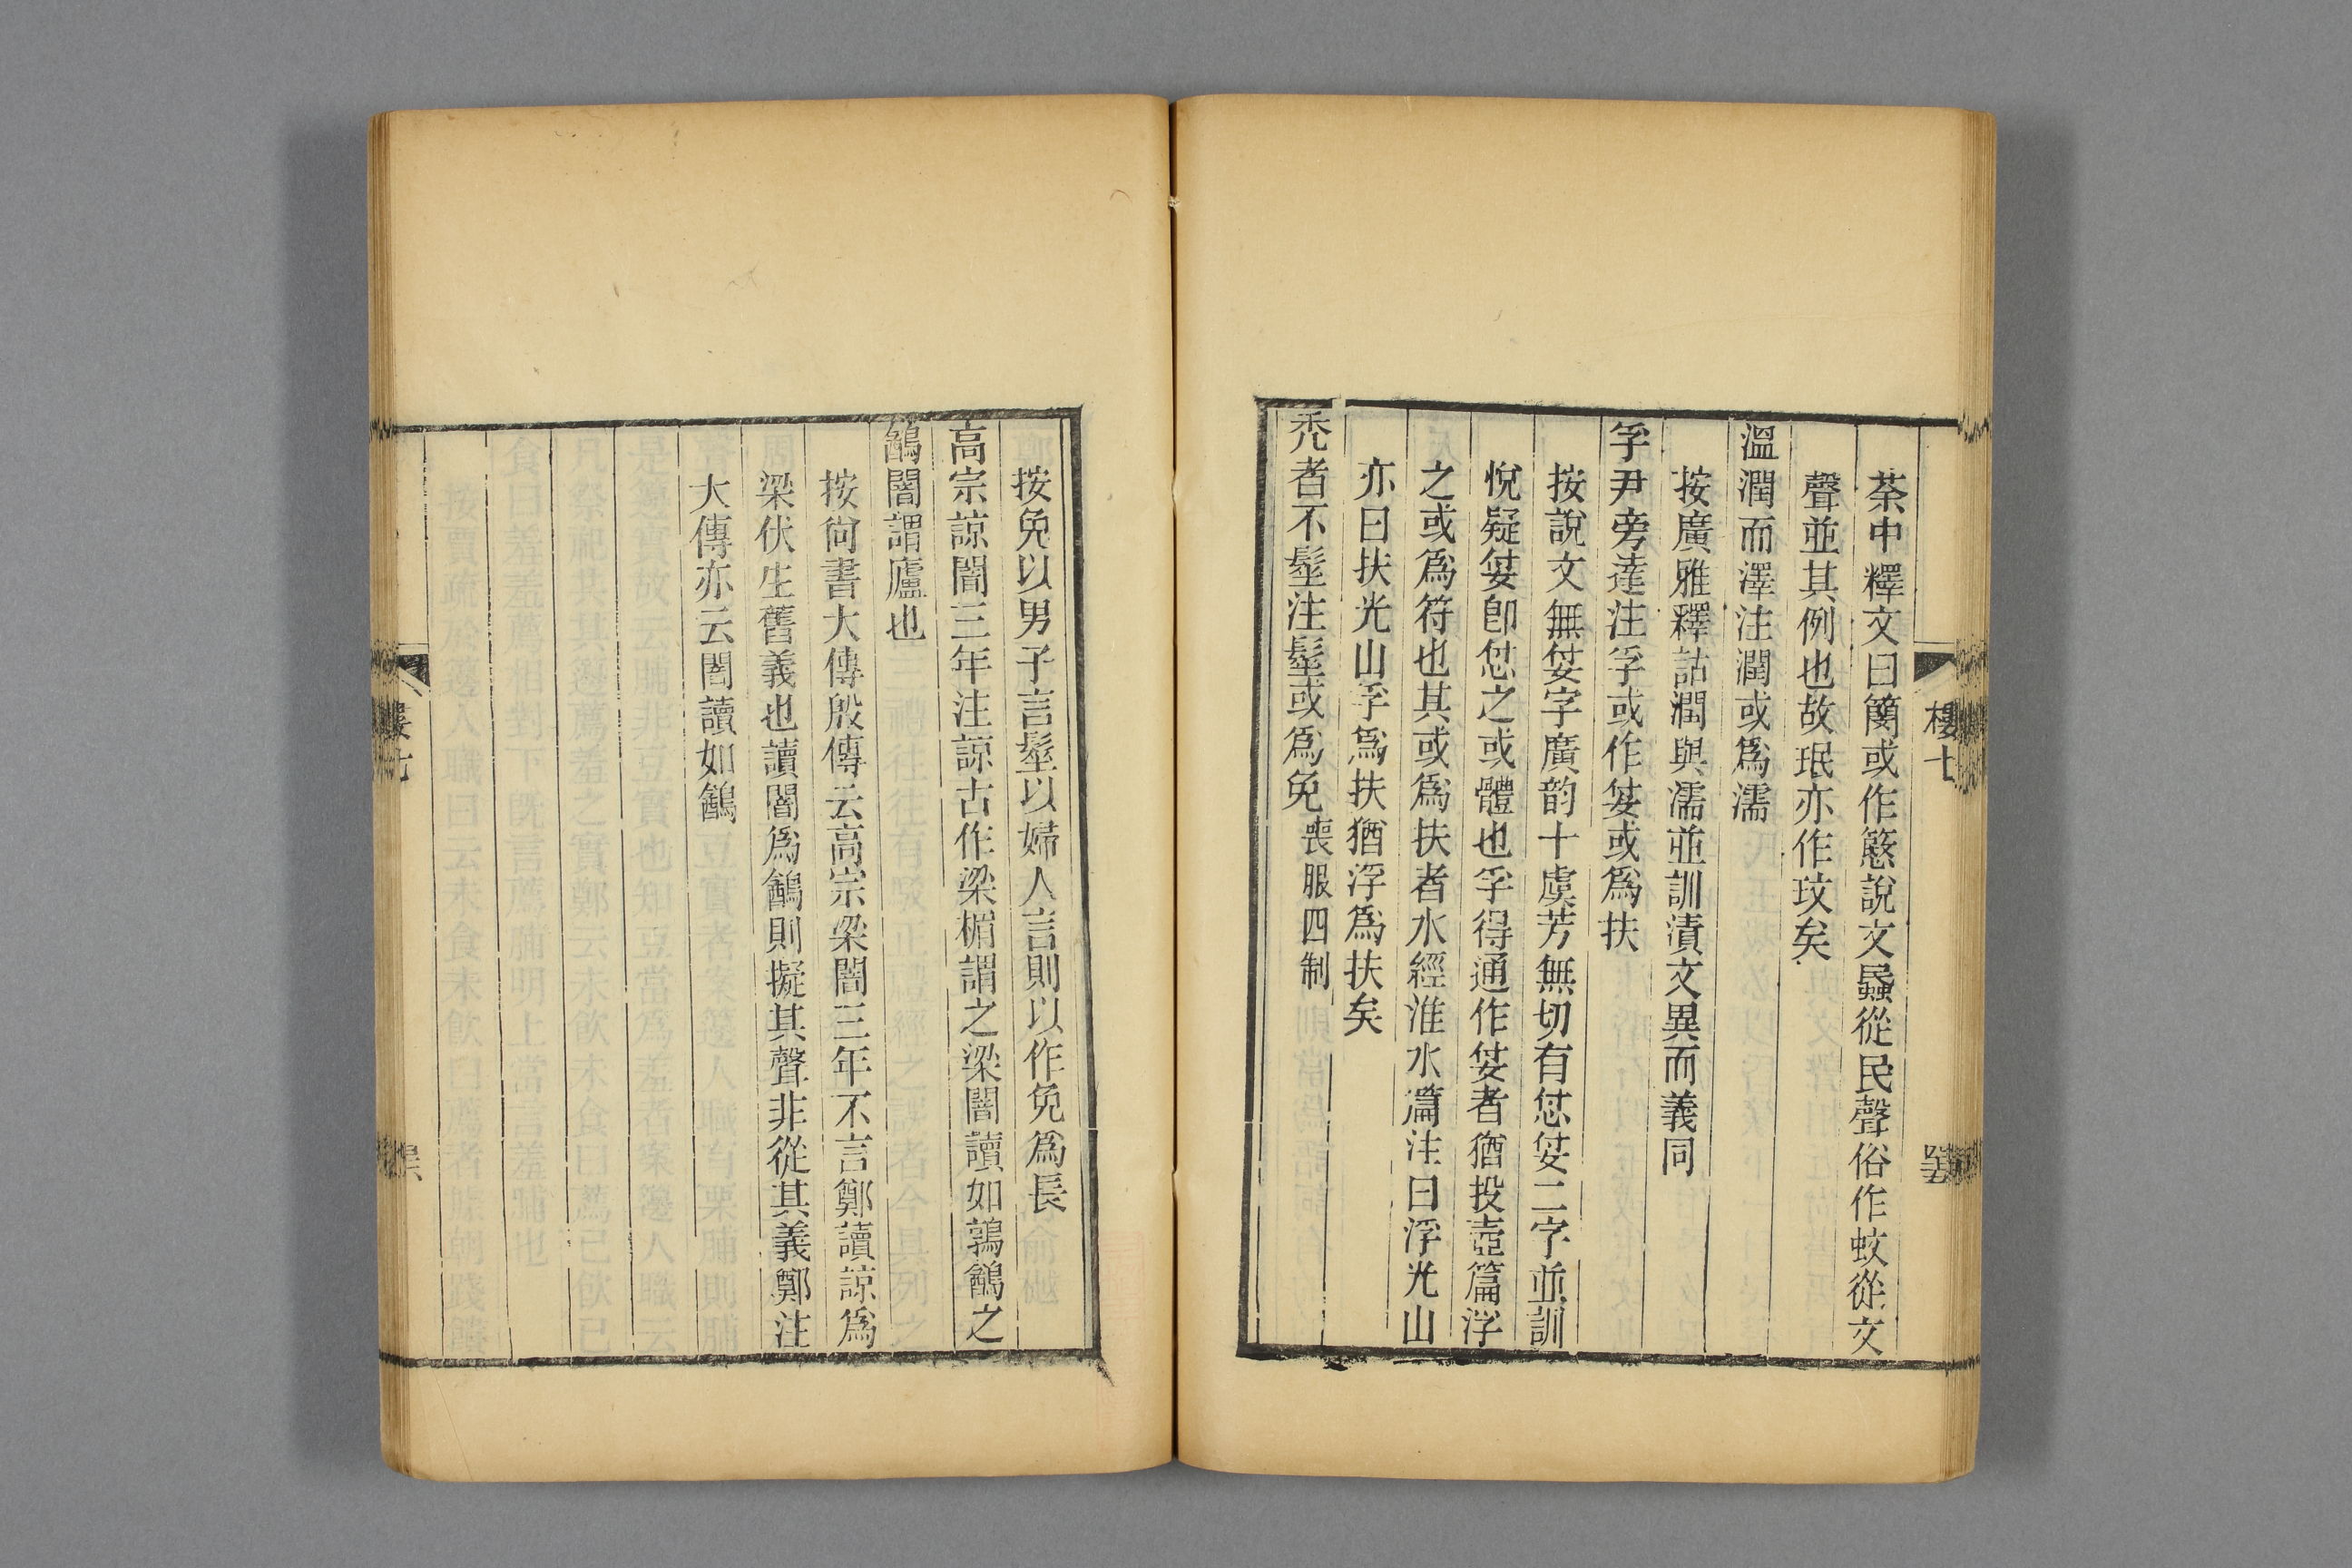 荼中釋文曰簢或作慜說文蟁從民聲俗作蚊從文
聲並其例也故珉亦作玟矣
溫潤而澤注潤或爲濡
按廣雅釋詁潤與濡並訓漬文異而義同
孚尹旁達注孚或作姇或爲扶
按說文無姇字廣韵十虞芳無切有怤姇二字並訓
悅疑姇卽怤之或體也孚得通作姇者猶投壺篇浮
之或爲符也其或爲扶者水經淮水篇注曰浮光山
亦曰扶光山孚爲扶猶浮爲扶矣
禿者不髽注髽或爲免喪服四制
按免以男子言髽以婦人言則以作免爲長
高宗諒闇三年注諒古作梁楣謂之梁闇讀如鶉鷂之
鷂闇謂廬也
按尙書大傳殷傳云高宗梁闇三年不言鄭讀諒爲
梁伏生舊義也讀闇爲鷂則擬其聲非從其義鄭注
大傳亦云闇讀如鷂
樓十